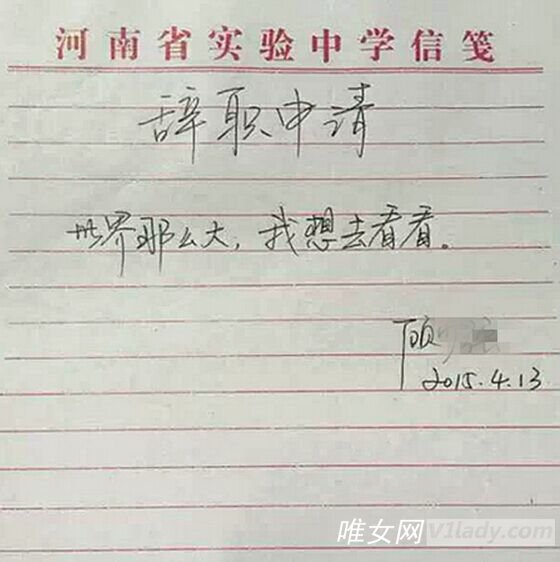 河南省实验中学信笺
辞职申请
世界那么大，我想去看看。
顾
2015.4.13
唯女网V1lady.com